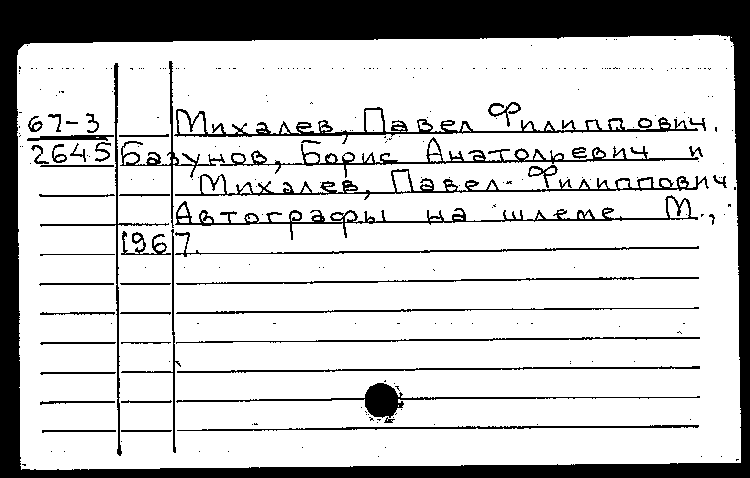 67-3 Михалев, Павел Филиппович.
2645 Базунов, Борис Анатольевич и
Михалев, Павел Филиппович.
Автографы на шлеме. М.,
1967.